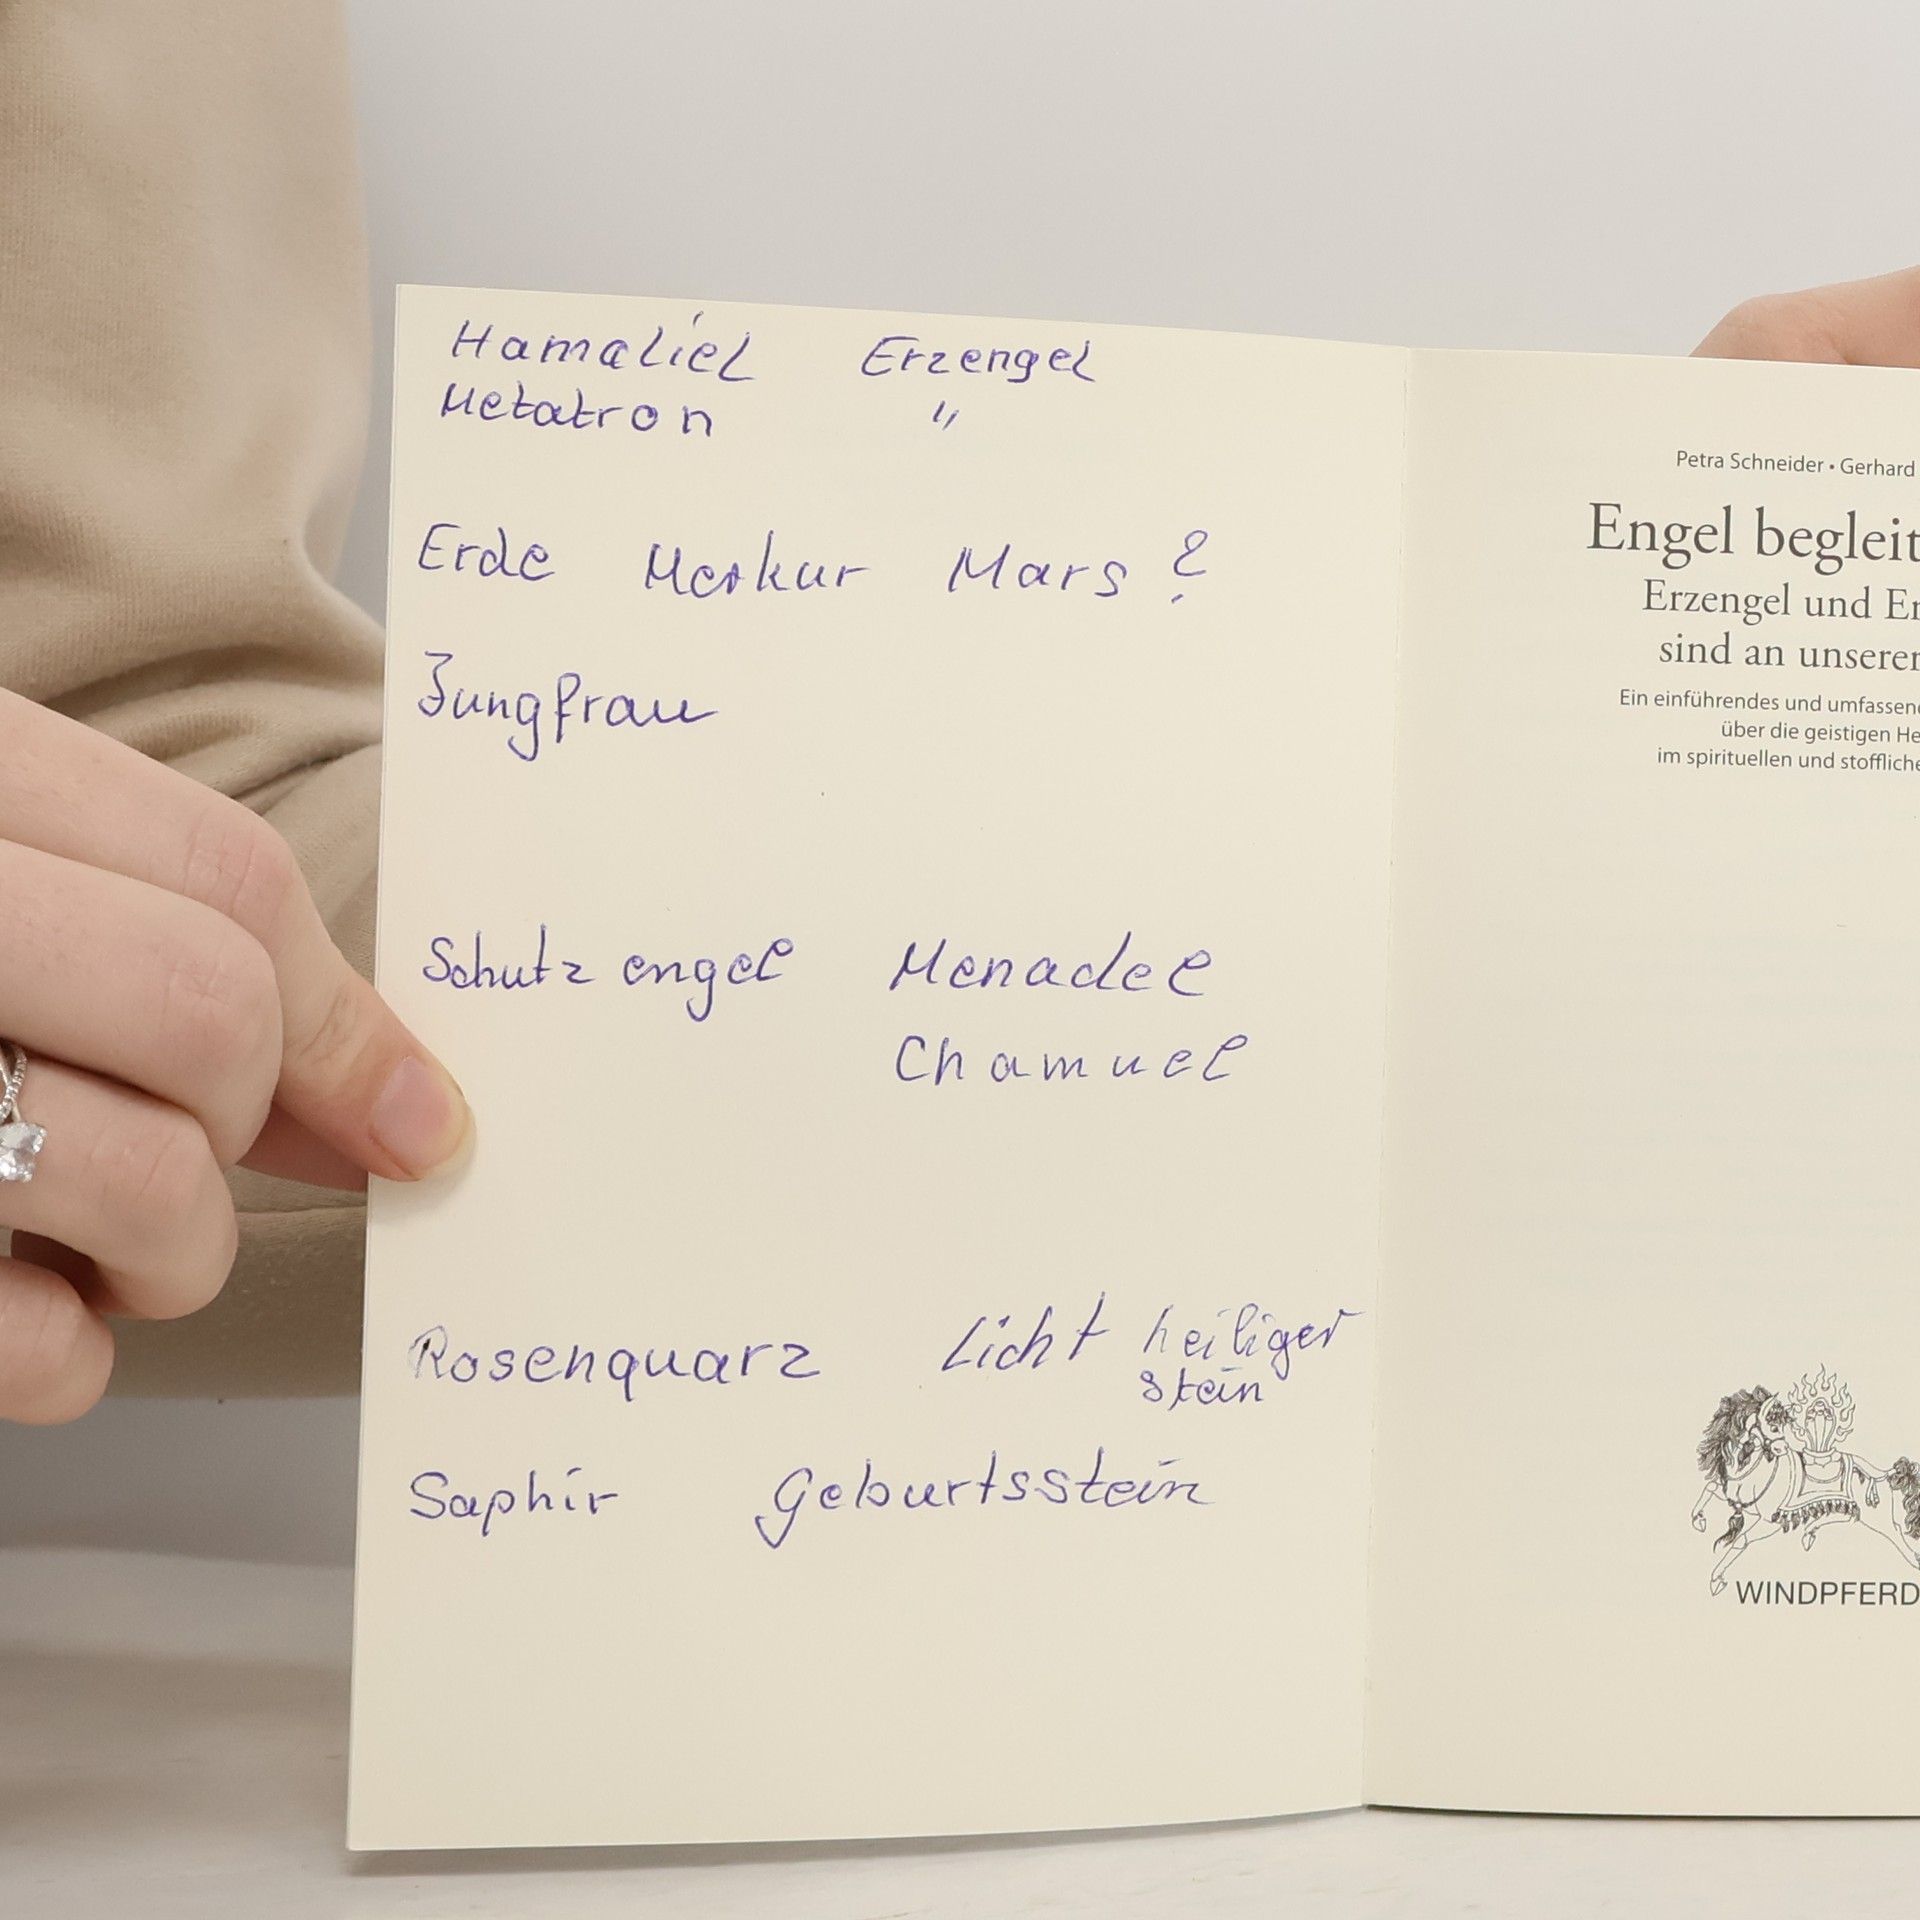 Hamaliel Erzengel
Metatron "
Erde Merkur Mars ?
Jungfrau
Schutzengel Menadel
Chamuel
Rosenquarz Licht heiliger
stein
Saphir Geburtsstein
Petra Schneider • Gerhard
Engel begleit
Erzengel und En
sind an unserer
Ein einführendes und umfassend
über die geistigen He
im spirituellen und stoffliche
WINDPFERD